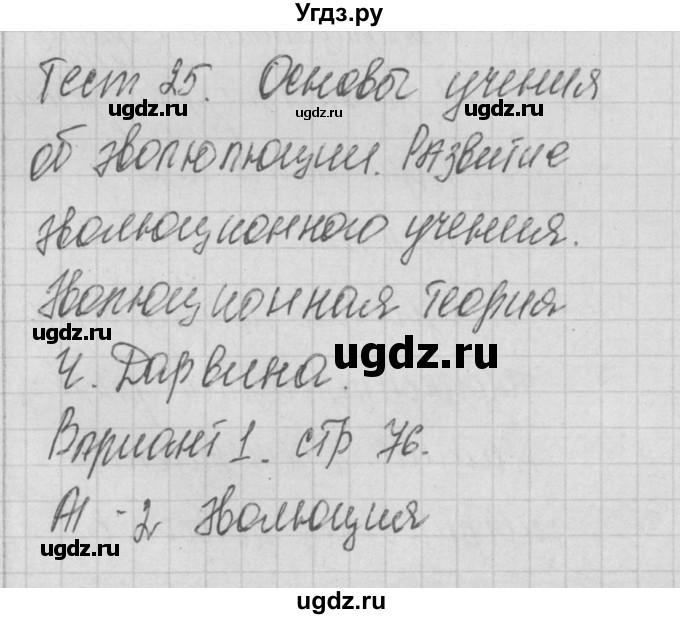 Угдз.ру
Тест 25. Основы учения
ugdz.ru ugdz.ru
об эволюлюции. Развитие
эволюционного учения.
Эволюционная теория
ugdz.ru ugdz.ru
Ч. Дарвина.
ugdz.ru
Вариант 1. стр 76.
А1 - 2 эволюция
ugdz.ru
ugdz.ru